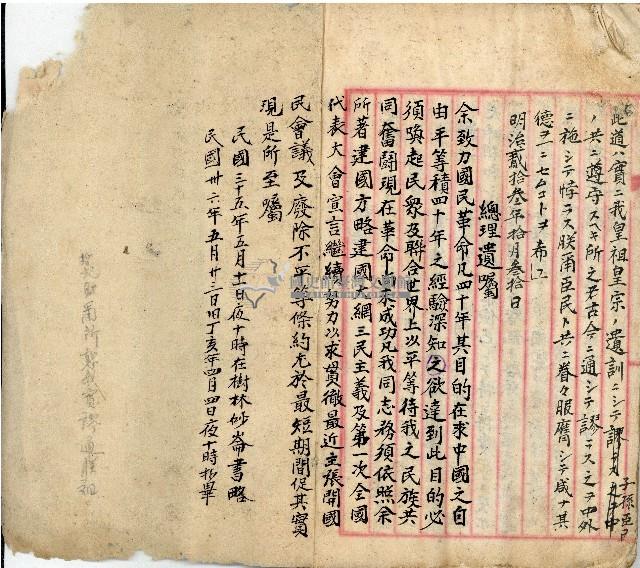 此道ハ實ニ我皇祖皇宗ノ遺訓ニシテ 子孫臣民
ノ共ニ遵守スベキ所之ヲ古今ニ通シテ謬ラス之ヲ中外
ニ施シテ悖ラス朕爾臣民ト共ニ眷々服膺シテ咸ナ其
德ヲ一ニセムコトヲ希フ
明治貳拾叁年拾月叁拾日
總理遺囑
余致力國民革命凡四十年其目的在求中國之自
由平等積四十年之經驗深知之欲達到此目的必
須喚起民衆及聯合世界上以平等待我之民族共
同奮鬪現在革命尚未成功凡我同志務須依照余
所著建國方略建國大網三民主義及第一次全國
代表大會宣言繼續努力以求貫徹最近主張開國
民會議及廢除不平等條約尤於最短期間促其實
現是所至囑
民國三十五年五月十一日夜十時在樹林 書略
民國卅六年五月廿三日旧丁亥年四月四日夜十時抄畢